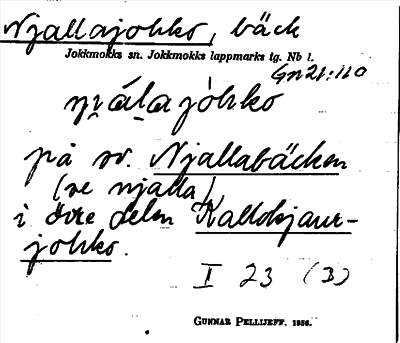 Njallajohko, bäck
Jokkmokks sn. Jokkmokks lappmarks tg. Nb l.
Gn21:110
njálajòhko
på sv. Njallabäcken
(se njalla)
i övre delen Kallokjaur-
johko.
I 23 (B)
GUNNAR PELLIJEFF. 1956.